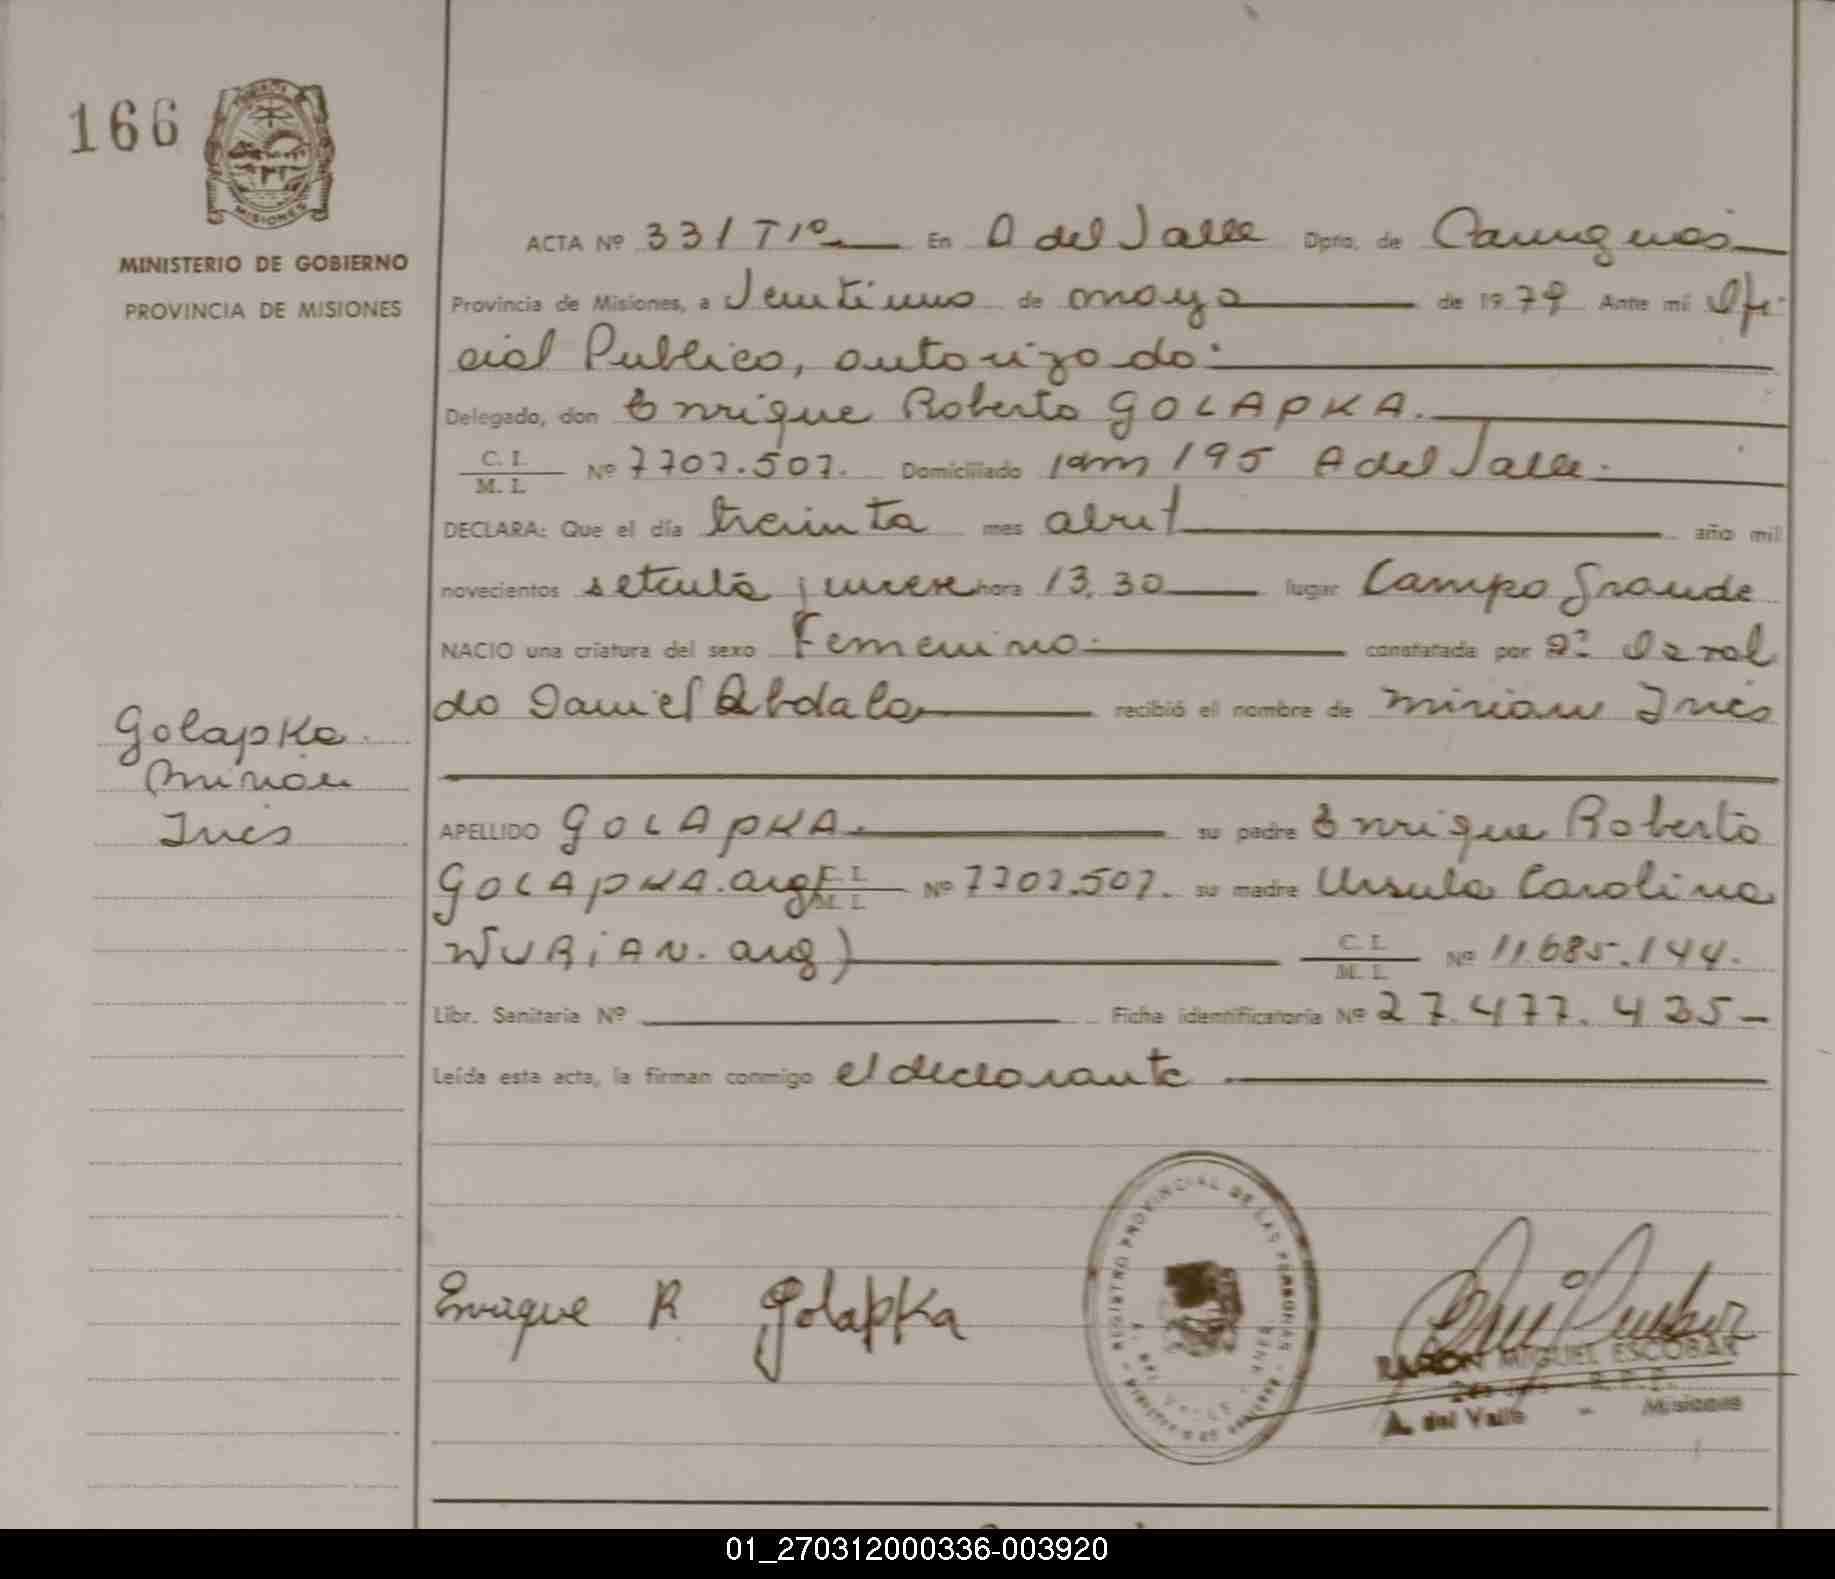 166
MISIONES
MINISTERIO DE GOBIERNO
PROVINCIA DE MISIONES
Golapka
Mirian
Inés
ACTA Nº 331 Tº En A del Valle Dpto. de Cainguás
Provincia de Misiones, a Veintiuno de mayo de 1979 Ante mí Ofi-
cial Publico, autorizado:
Delegado, don Enrique Roberto GOLAPKA.
C. I. / M. I. Nº 7707.507. Domiciliado km 195 A del Valle.
DECLARA: Que el día treinta mes abril año mil
novecientos setenta y nueve hora 13.30 lugar Campo Grande
NACIO una criatura del sexo Femenino constatada por Dr. Osval
do Daniel Abdala recibió el nombre de Mirian Inés
APELLIDO GOLAPKA. su padre Enrique Roberto
GOLAPKA. arg. C. I. / M. I. Nº 7707.507. su madre Ursula Carolina
WURIAN. arg) C. I. / M. I. Nº 11.685.144.
Libr. Sanitaria Nº Ficha identificatoria Nº 27.477.435-
Leída esta acta, la firman conmigo el declarante
Enrique R Golapka
REGISTRO PROVINCIAL DE LAS PERSONAS
A. DEL VALLE
RAMON MIGUEL ESCOBAR
A. del Valle - Misiones
01_270312000336-003920